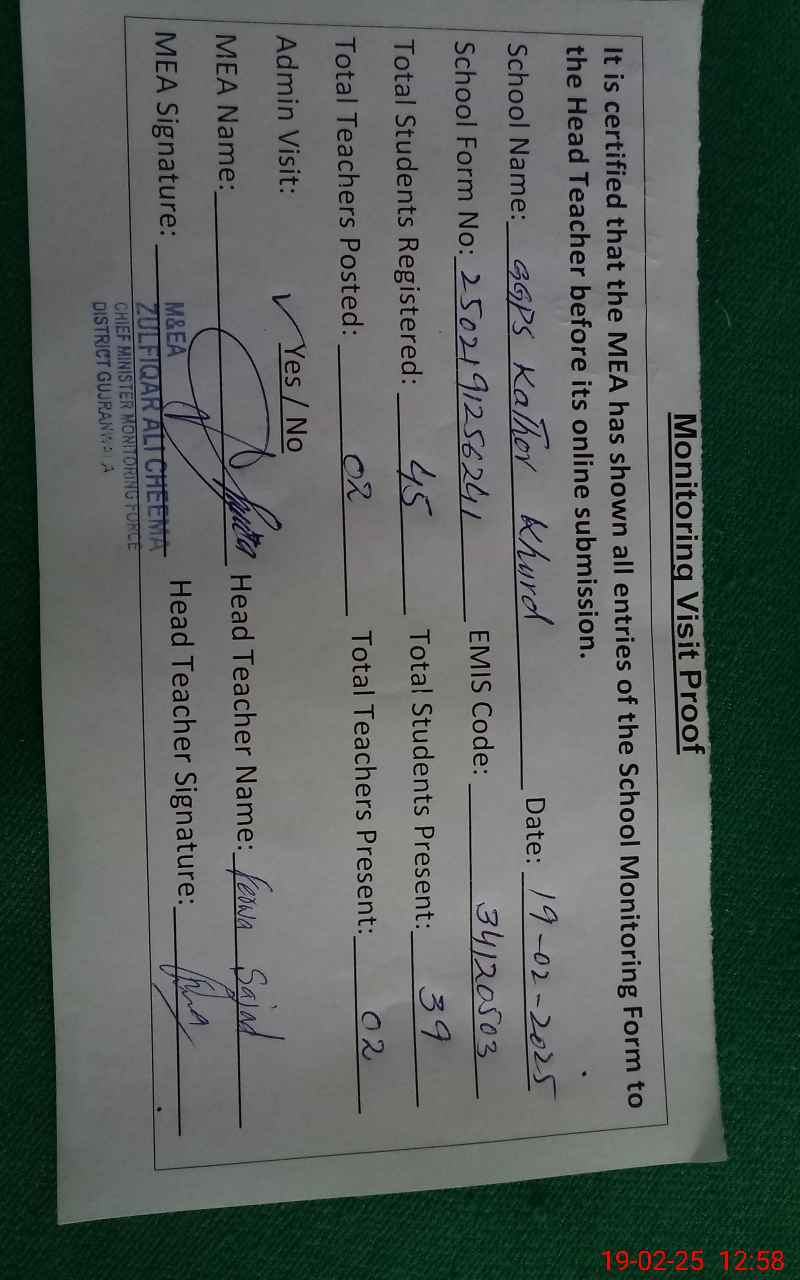 Monitoring Visit Proof
It is certified that the MEA has shown all entries of the School Monitoring Form to
the Head Teacher before its online submission.
School Name: GGPS Kathor Khurd Date: 19-02-2025
School Form No: 2502191256241 EMIS Code: 34120503
Total Students Registered: 45 Total Students Present: 39
Total Teachers Posted: 02 Total Teachers Present: 02
Admin Visit: ✓ Yes / No
MEA Name: Head Teacher Name: Sajad
MEA Signature: Head Teacher Signature:
M&EA
ZULFIQAR ALI CHEEMA
CHIEF MINISTER MONITORING FORCE
DISTRICT GUJRANWALA
19-02-25 12:58